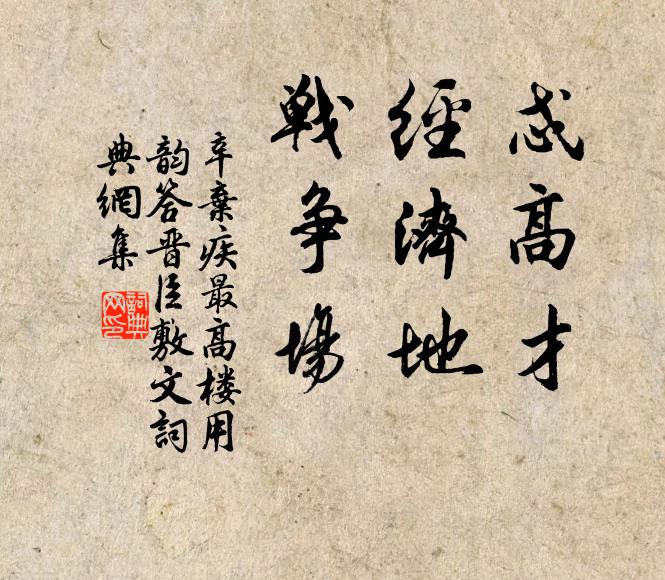 忒高才
經濟地
戰爭場
辛棄疾最高楼用
韵答晋臣敷文詞
典網集
詞典网印